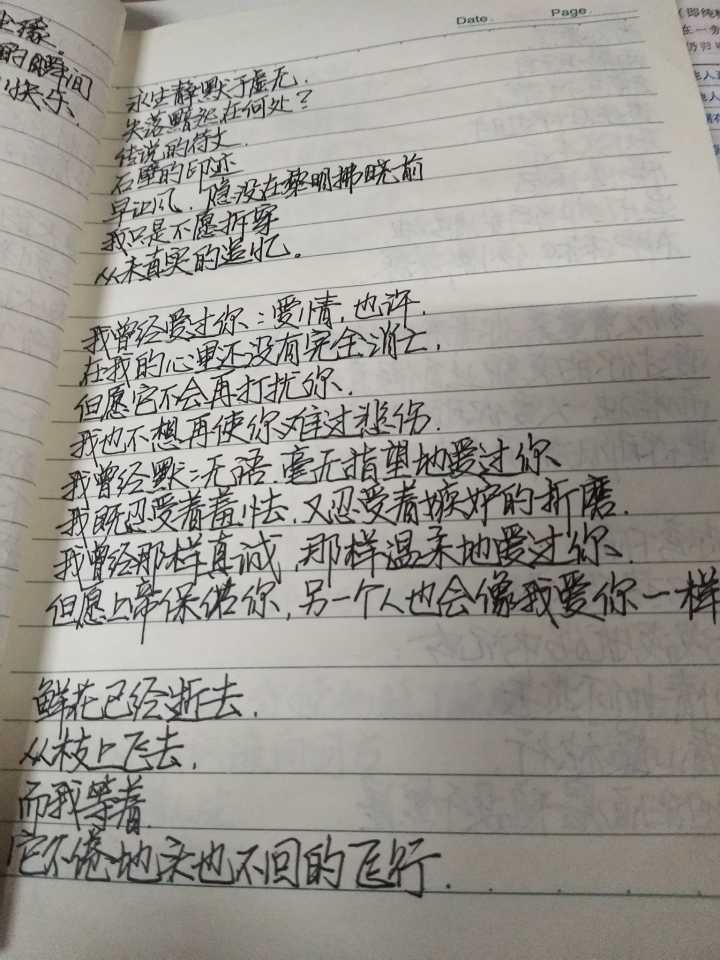 Date.
Page.
的瞬间
快乐.
永生静默于虚无.
失落黯淡在何处?
传说的待文.
石壁的印迹
早让风. 隐没在黎明拂晓前
我只是不愿拆穿
从未真实的追忆。
我曾经爱过你:爱情,也许.
在我的心里还没有完全消亡,
但愿它不会再打扰你.
我也不想再使你难过悲伤.
我曾经默:无语.毫无指望地爱过你.
我既忍受着羞怯,又忍受着嫉妒的折磨.
我曾经那样真诚,那样温柔地爱过你.
但愿上帝保偌你,另一个人也会像我爱你一样
鲜花已经逝去.
从枝上飞去,
而我等着
它不倦地头也不回的飞行.